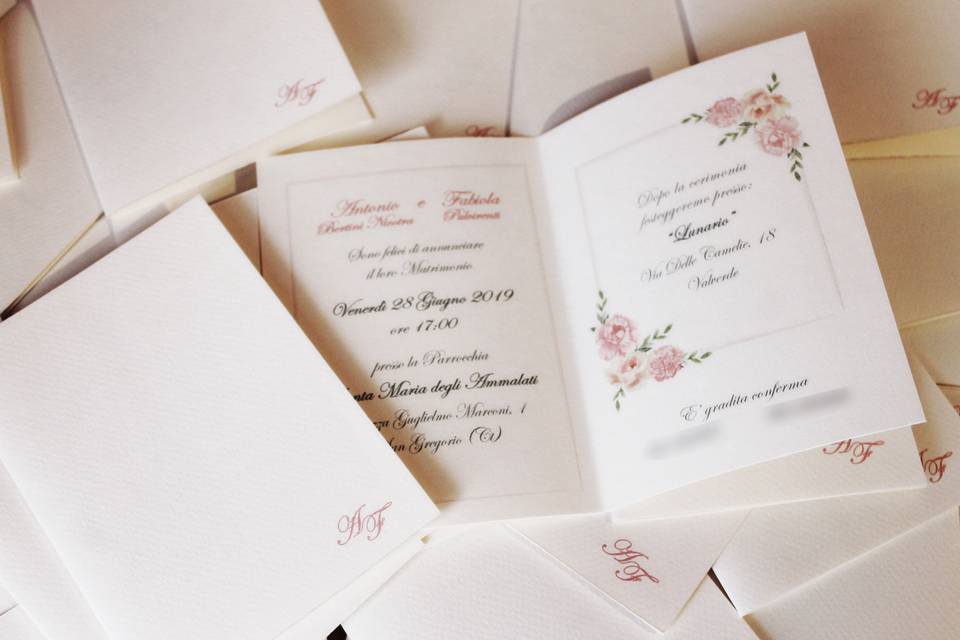 AF
AF
AF
Antonio e Fabiola
Bertini Nicotra Pulvirenti
Sono felici di annunciare
il loro Matrimonio
Venerdì 28 Giugno 2019
ore 17:00
presso la Parrocchia
nta Maria degli Ammalati
za Guglielmo Marconi, 1
an Gregorio (Ct)
Dopo la cerimonia
festeggeremo presso:
"Lunario"
Via Delle Camelie, 18
Valverde
E' gradita conferma
AF
AF
AF
AF